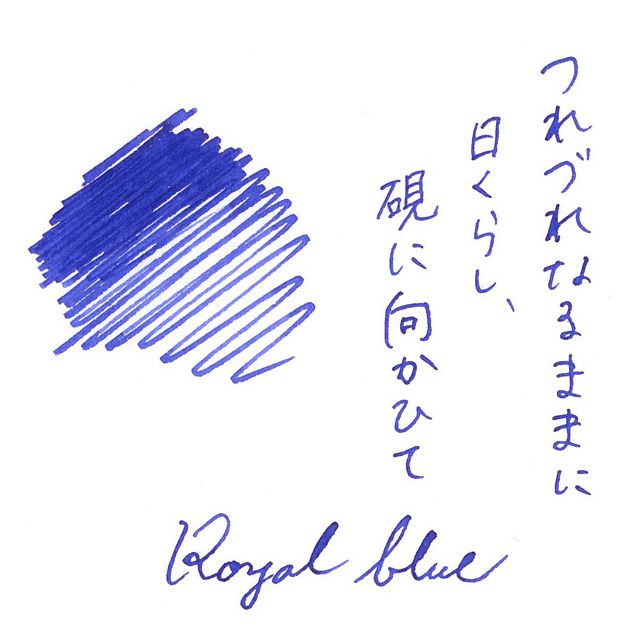 つれづれなるままに
日くらし、
硯に向かひて
Royal blue